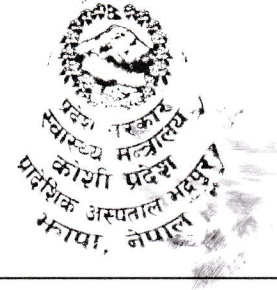 प्रदेश सरकार
स्वास्थ्य मन्त्रालय
कोशी प्रदेश
प्रादेशिक अस्पताल भद्रपुर
झापा, नेपाल